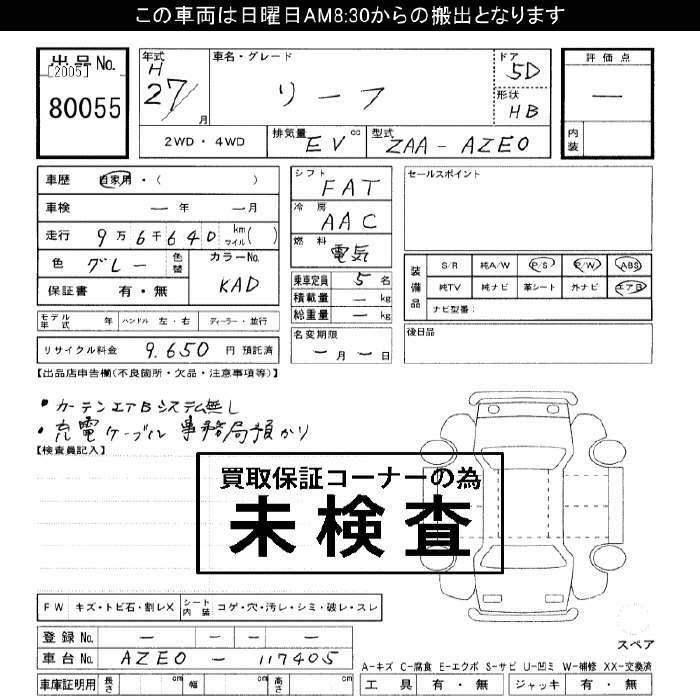 この車両は日曜日AM8:30からの搬出となります
出品No.
[2005]
80055
年式
H
27/
月
車名・グレード
リーフ
ドア
5D
形状
HB
評価点
―
内装
2WD・4WD
排気量
EV
cc
型式
ZAA-AZE0
車歴
自家用・( )
車検 ― 年 ― 月
走行 9万6千640 km マイル( )
色 グレー 色替
カラーNo.
KAD
保証書 有・無
シフト
FAT
冷房
AAC
燃料
電気
乗車定員 5名
積載量 ― kg
総重量 ― kg
名変期限
―月―日
セールスポイント
装備品
S/R 純A/W P/S P/W ABS
純TV 純ナビ 革シート 外ナビ エアB
ナビ型番:
後日品
モデル年式 年 ハンドル 左・右 ディーラー・並行
リサイクル料金 9,650 円 預託済
【出品店申告欄(不良箇所・欠品・注意事項等)】
・カーテンエアBシステム無し
・充電ケーブル事務局預かり
【検査員記入】
買取保証コーナーの為
未検査
FW キズ・トビ石・割レX シート内装 コゲ・穴・汚レ・シミ・破レ・スレ
登録No. ― ― ― ―
車台No. AZE0 - 117405
車庫証明用 長さ cm 幅 cm 高さ cm
スペア
A-キズ C-腐食 E-エクボ S-サビ U-凹ミ W-補修 XX-交換済
工具 有・無 ジャッキ 有・無